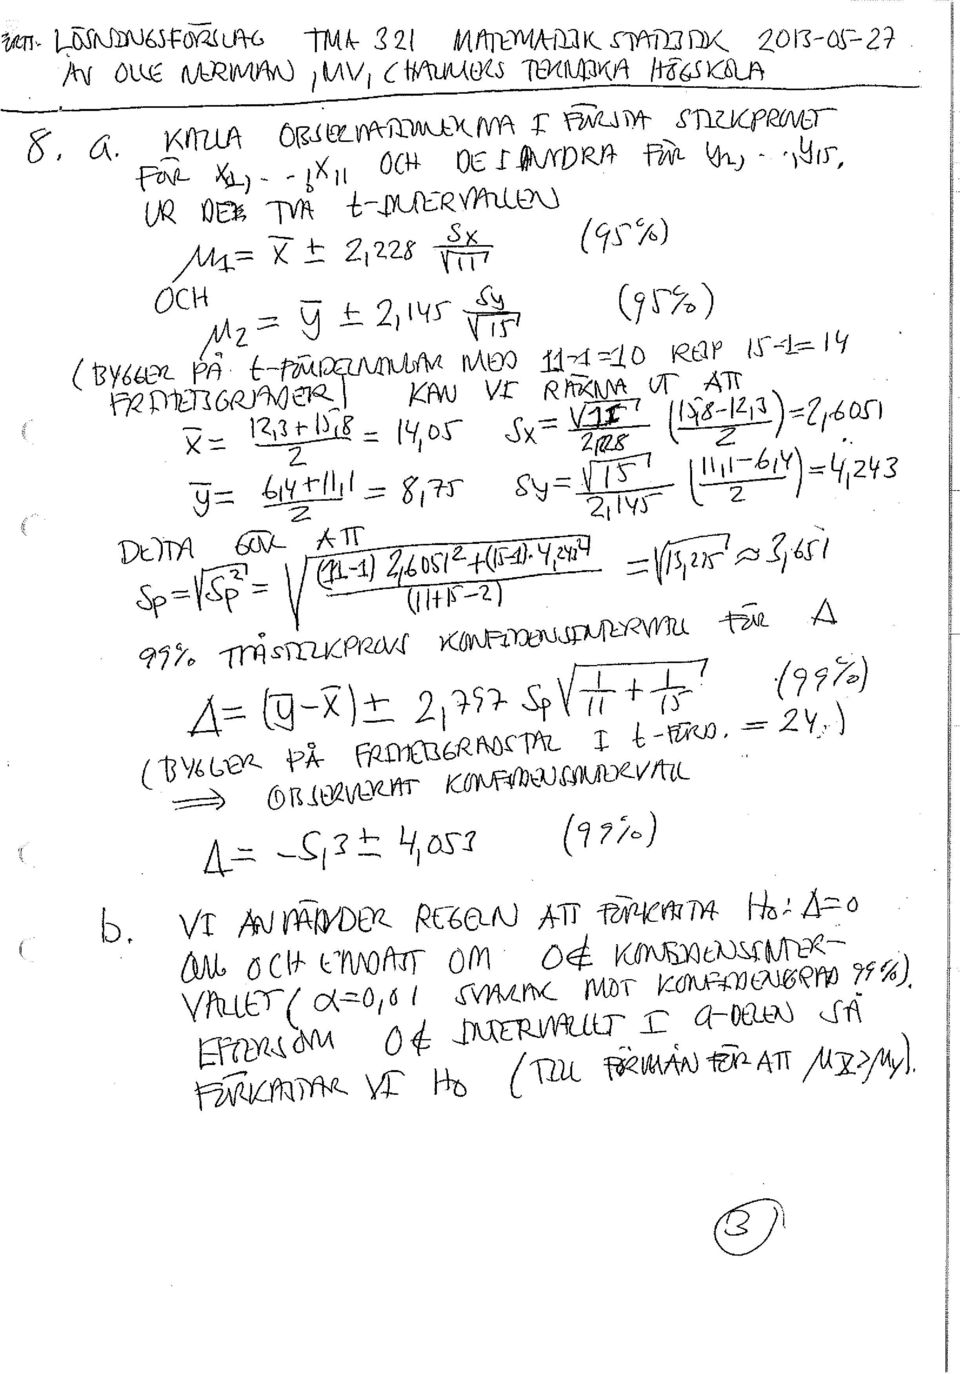 FORTS. LÖSNINGSFÖRSLAG TMA 321 MATEMATISK STATISTIK 2013-05-27
AV OLLE NERMAN, MV, CHALMERS TEKNISKA HÖGSKOLA
8. a. KALLA OBSERVATIONERNA I FÖRSTA STICKPROVET
FÖR X1, - - , X11 OCH DE I ANDRA FÖR Y1, - . , Y15,
UR DE TVÅ t-INTERVALLEN
μ1 = x̄ ± 2,228 Sx/√11 (95%)
OCH
μ2 = ȳ ± 2,145 Sy/√15 (95%)
(BYGGER PÅ t-FÖRDELNINGAR MED 11-1=10 RESP 15-1=14
FRIHETSGRADER) KAN VI RÄKNA UT ATT
x̄ = (12,3+15,8)/2 = 14,05 Sx = √11/2,228 ((15,8-12,3)/2) = 2,6051
ȳ = (6,4+11,1)/2 = 8,75 Sy = √15/2,145 ((11,1-6,4)/2) = 4,243
DETTA GER ATT
Sp = √Sp² = √(((11-1) 2,6051² + (15-1)·4,243²)/(11+15-2)) = √13,275 ≈ 3,651
99% TVÅSTICKPROVS KONFIDENSINTERVALL FÖR Δ
Δ = (ȳ-x̄) ± 2,797 Sp √(1/11 + 1/15) (99%)
(BYGGER PÅ FRIHETSGRADSTAL I t-FÖRD. = 24.)
⟹ OBSERVERAT KONFIDENSINTERVALL
Δ = -5,3 ± 4,053 (99%)
b. VI ANVÄNDER REGELN ATT FÖRKASTA H0: Δ=0
OM OCH ENDAST OM 0∉ KONFIDENSINTER-
VALLET (α=0,01 SVARAR MOT KONFIDENSGRAD 99%).
EFTERSOM 0∉ INTERVALLET I a-DELEN SÅ
FÖRKASTAR VI H0 (TILL FÖRMÅN FÖR ATT μX>μY).
3